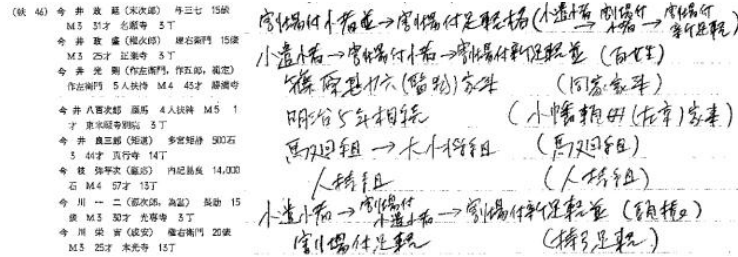 (秩 46) 今井政延(末次郎) 与三七 15俵
M3 31才 名願寺 3丁
今井政盛(権次郎) 理右衛門 15俵
M3 25才 正楽寺 3丁
今井光則(作左衛門,作五郎,義定)
作左衛門 5人扶持 M4 43才 勝満寺
今井八百次郎 順馬 4人扶持 M5 1
才 東末願寺別院 3丁
今井良三郎(矩道) 多宮矩静 500石
3 44才 真行寺 14丁
今枝弥平次 内記易良 14,000
石 M4 57才 13丁
今川一二(都次郎,為証) 長助 15
俵 M3 30才 光専寺 3丁
今川栄吉(成安) 権右衛門 20俵
M3 25才 末光寺 3丁
割場付小者並→割場付足軽格(小遣小者→割場付小者→割場付新足軽)
小遣小者→割場付小者→割場付新足軽並
篠原 家来 (同家家来)
明治5年相続 (小幡 家来)
馬廻組→大小将組 (馬廻組)
人持組 (人持組)
小遣小者→割場付小遣小者→割場付新足軽並
割場付足軽 (持弓足軽)